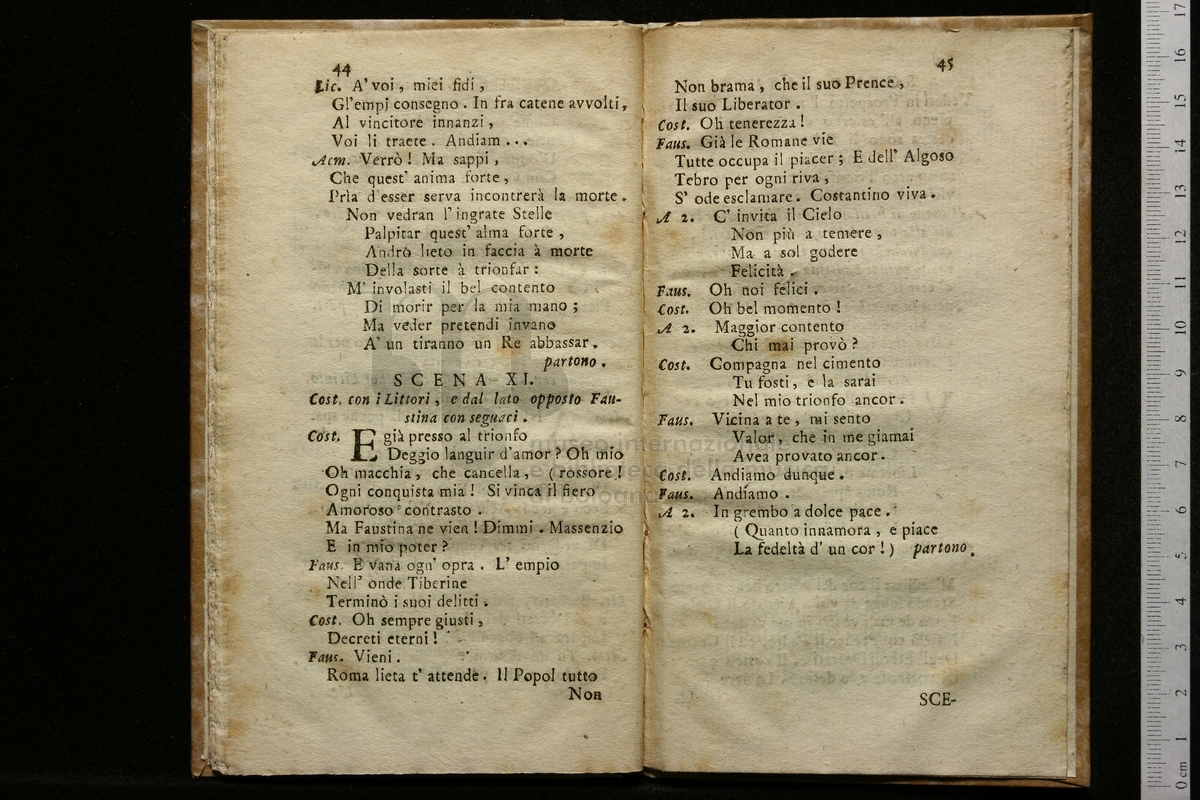 44
Lic. A' voi, miei fidi,
Gl'empj consegno. In fra catene avvolti,
Al vincitore innanzi,
Voi li traete. Andiam...
Acm. Verrò! Ma sappi,
Che quest' anima forte,
Prìa d'esser serva incontrerà la morte.
Non vedran l'ingrate Stelle
Palpitar quest' alma forte,
Andrò lieto in faccia à morte
Della sorte à trionfar:
M' involasti il bel contento
Di morir per la mia mano;
Ma veder pretendi invano
A' un tiranno un Re abbassar.
partono.
SCENA XI.
Cost. con i Littori, e dal lato opposto Fau-
stina con seguaci.
Cost. E già presso al trionfo
Deggio languir d'amor? Oh mio
Oh macchia, che cancella, (rossore!
Ogni conquista mia! Si vinca il fiero
Amoroso contrasto.
Ma Faustina ne vien! Dimmi. Massenzio
E in mio poter?
Faus. E vana ogn' opra. L' empio
Nell' onde Tiberine
Terminò i suoi delitti.
Cost. Oh sempre giusti,
Decreti eterni!
Faus. Vieni.
Roma lieta t' attende. Il Popol tutto
Non
45
Non brama, che il suo Prence,
Il suo Liberator.
Cost. Oh tenerezza!
Faus. Già le Romane vie
Tutte occupa il piacer; E dell' Algoso
Tebro per ogni riva,
S' ode esclamare. Costantino viva.
A 2. C' invita il Cielo
Non più a temere,
Ma a sol godere
Felicità.
Faus. Oh noi felici.
Cost. Oh bel momento!
A 2. Maggior contento
Chi mai provò?
Cost. Compagna nel cimento
Tu fosti, e la sarai
Nel mio trionfo ancor.
Faus. Vicina a te, mi sento
Valor, che in me giamai
Avea provato ancor.
Cost. Andiamo dunque.
Faus. Andíamo.
A 2. In grembo a dolce pace.
(Quanto innamora, e piace
La fedeltà d' un cor!) partono.
SCE-
museo internazionale
di bologna
0 cm 1 2 3 4 5 6 7 8 9 10 11 12 13 14 15 16 17